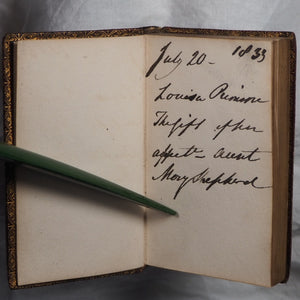 July 20 - 1833
Louisa
The gift of her
affect- aunt
Mary Shepherd